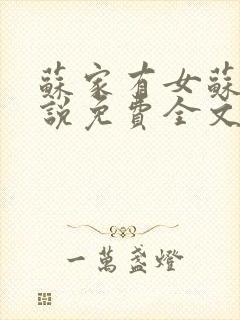 蘇家有女蘇
說免費全文
一萬盞燈